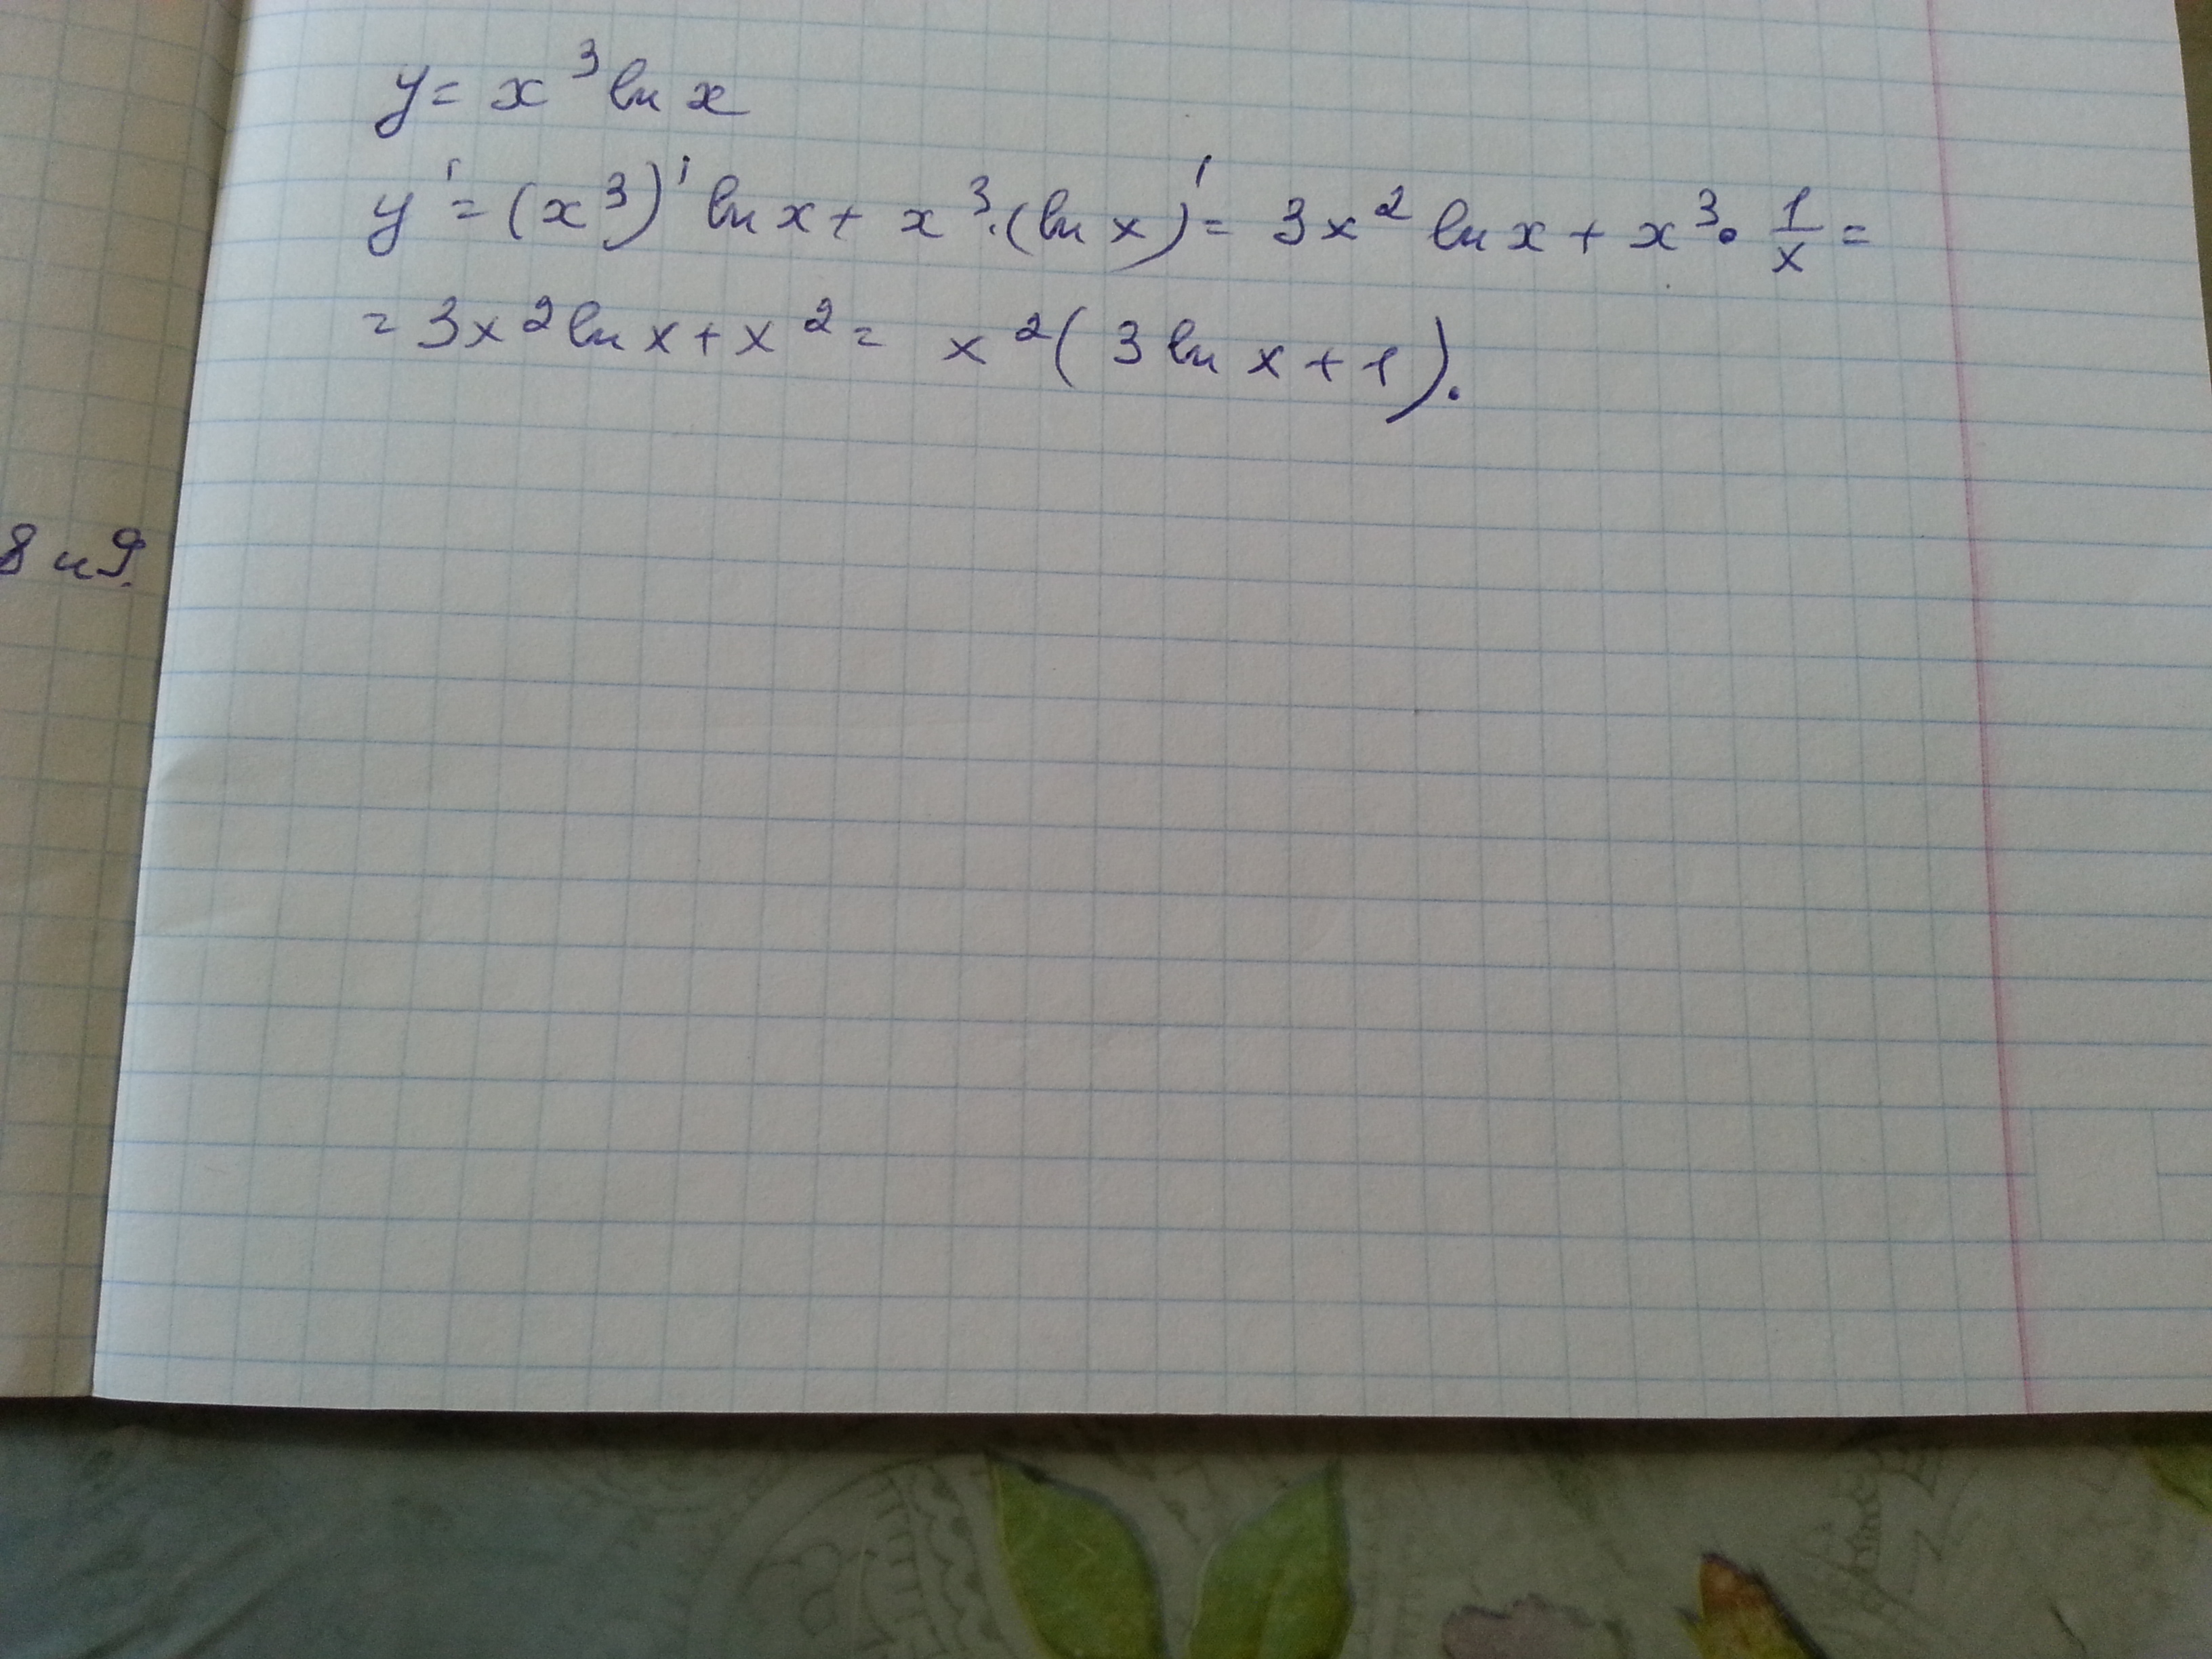 y = x³ ln x
y' = (x³)' ln x + x³·(ln x)' = 3x² ln x + x³ · 1/x =
= 3x² ln x + x² = x² (3 ln x + 1).
8 и 9.